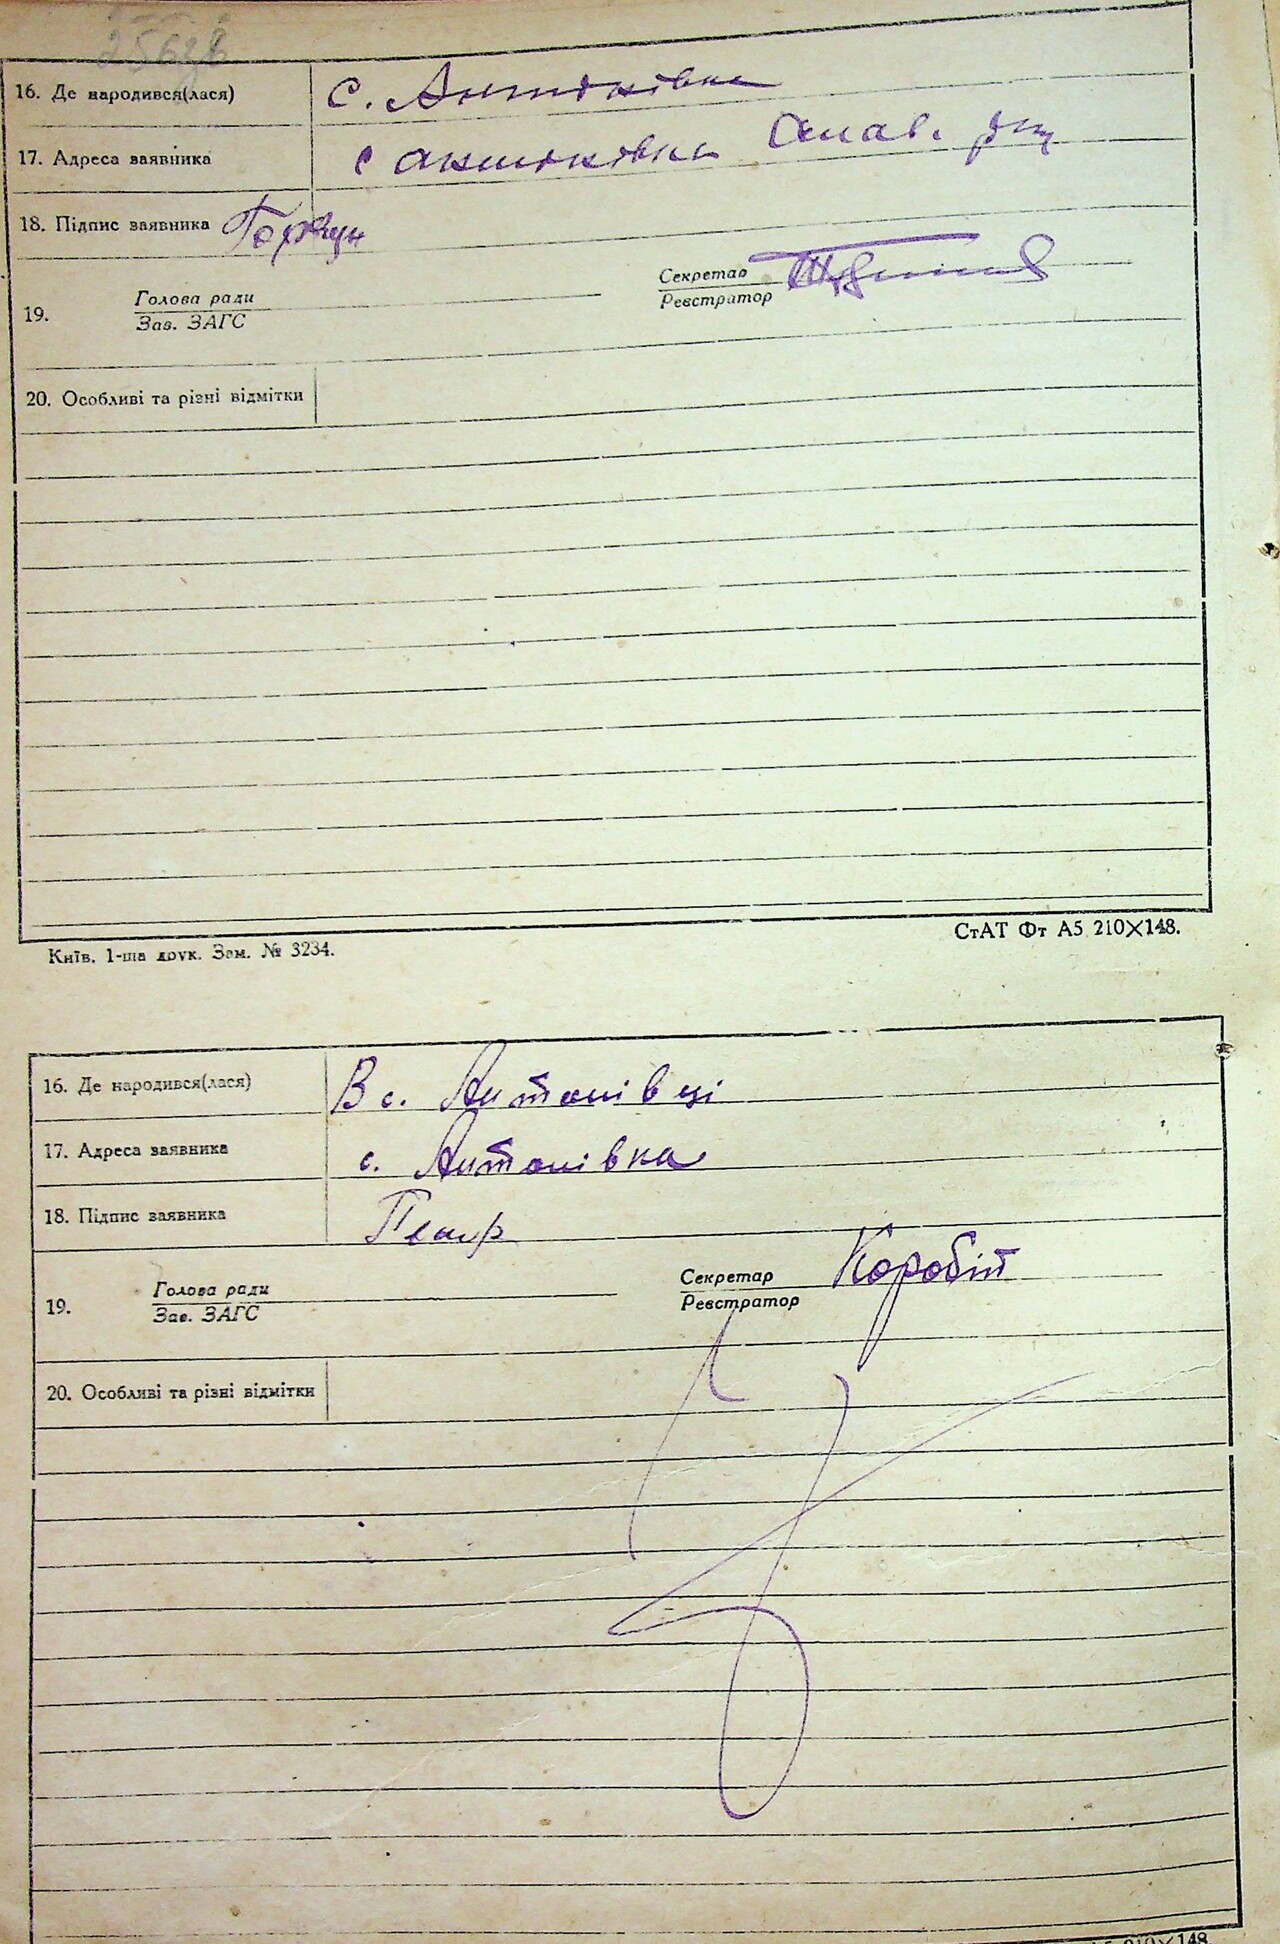 16. Де народився(лася) с. Антонівка
17. Адреса заявника с Антонівка
18. Підпис заявника
Секретар
Реєстратор
19. Голова ради
Зав. ЗАГС
20. Особливі та різні відмітки
СтАТ Фт А5 210×148.
Київ. 1-ша друк. Зам. № 3234.
16. Де народився(лася) В с. Антонівці
17. Адреса заявника с. Антонівка
18. Підпис заявника
Секретар Коробій
Реєстратор
19. Голова ради
Зав. ЗАГС
20. Особливі та різні відмітки
210×148